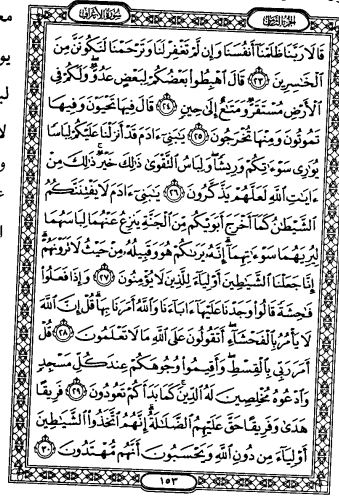 سُورَةُ الأَعْرَافِ الجُزْءُ الثَّامِنُ
قَالَا رَبَّنَا ظَلَمْنَا أَنفُسَنَا وَإِن لَّمْ تَغْفِرْ لَنَا وَتَرْحَمْنَا لَنَكُونَنَّ مِنَ
ٱلْخَٰسِرِينَ ٢٣ قَالَ ٱهْبِطُوا۟ بَعْضُكُمْ لِبَعْضٍ عَدُوٌّ وَلَكُمْ فِى
ٱلْأَرْضِ مُسْتَقَرٌّ وَمَتَٰعٌ إِلَىٰ حِينٍ ٢٤ قَالَ فِيهَا تَحْيَوْنَ وَفِيهَا
تَمُوتُونَ وَمِنْهَا تُخْرَجُونَ ٢٥ يَٰبَنِىٓ ءَادَمَ قَدْ أَنزَلْنَا عَلَيْكُمْ لِبَاسًا
يُوَٰرِى سَوْءَٰتِكُمْ وَرِيشًا وَلِبَاسُ ٱلتَّقْوَىٰ ذَٰلِكَ خَيْرٌ ذَٰلِكَ مِنْ
ءَايَٰتِ ٱللَّهِ لَعَلَّهُمْ يَذَّكَّرُونَ ٢٦ يَٰبَنِىٓ ءَادَمَ لَا يَفْتِنَنَّكُمُ
ٱلشَّيْطَٰنُ كَمَآ أَخْرَجَ أَبَوَيْكُم مِّنَ ٱلْجَنَّةِ يَنزِعُ عَنْهُمَا لِبَاسَهُمَا
لِيُرِيَهُمَا سَوْءَٰتِهِمَآ إِنَّهُۥ يَرَىٰكُمْ هُوَ وَقَبِيلُهُۥ مِنْ حَيْثُ لَا تَرَوْنَهُمْ
إِنَّا جَعَلْنَا ٱلشَّيَٰطِينَ أَوْلِيَآءَ لِلَّذِينَ لَا يُؤْمِنُونَ ٢٧ وَإِذَا فَعَلُوا۟
فَٰحِشَةً قَالُوا۟ وَجَدْنَا عَلَيْهَآ ءَابَآءَنَا وَٱللَّهُ أَمَرَنَا بِهَا قُلْ إِنَّ ٱللَّهَ
لَا يَأْمُرُ بِٱلْفَحْشَآءِ أَتَقُولُونَ عَلَى ٱللَّهِ مَا لَا تَعْلَمُونَ ٢٨ قُلْ
أَمَرَ رَبِّى بِٱلْقِسْطِ وَأَقِيمُوا۟ وُجُوهَكُمْ عِندَ كُلِّ مَسْجِدٍ
وَٱدْعُوهُ مُخْلِصِينَ لَهُ ٱلدِّينَ كَمَا بَدَأَكُمْ تَعُودُونَ ٢٩ فَرِيقًا
هَدَىٰ وَفَرِيقًا حَقَّ عَلَيْهِمُ ٱلضَّلَٰلَةُ إِنَّهُمُ ٱتَّخَذُوا۟ ٱلشَّيَٰطِينَ
أَوْلِيَآءَ مِن دُونِ ٱللَّهِ وَيَحْسَبُونَ أَنَّهُم مُّهْتَدُونَ ٣٠
١٥٣